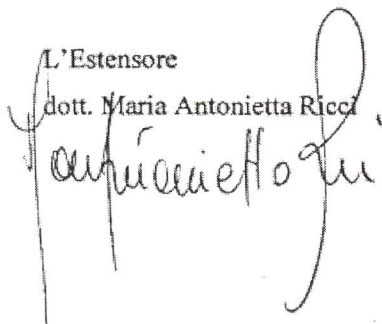 L'Estensore
dott. Maria Antonietta Ricci